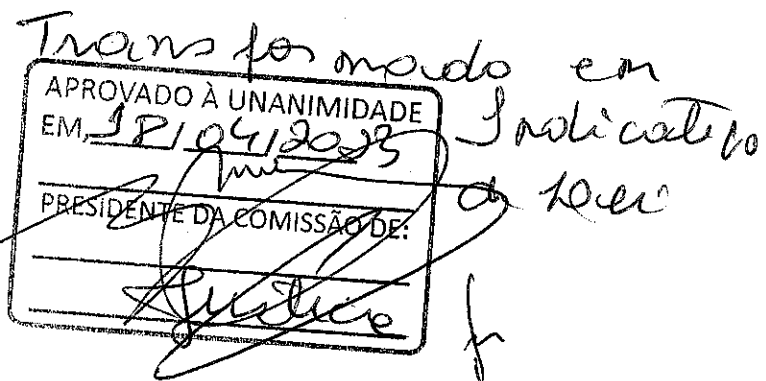 Transformado em
Indicativo
de Lei
APROVADO À UNANIMIDADE
EM, 18/04/2023
PRESIDENTE DA COMISSÃO DE:
Justiça